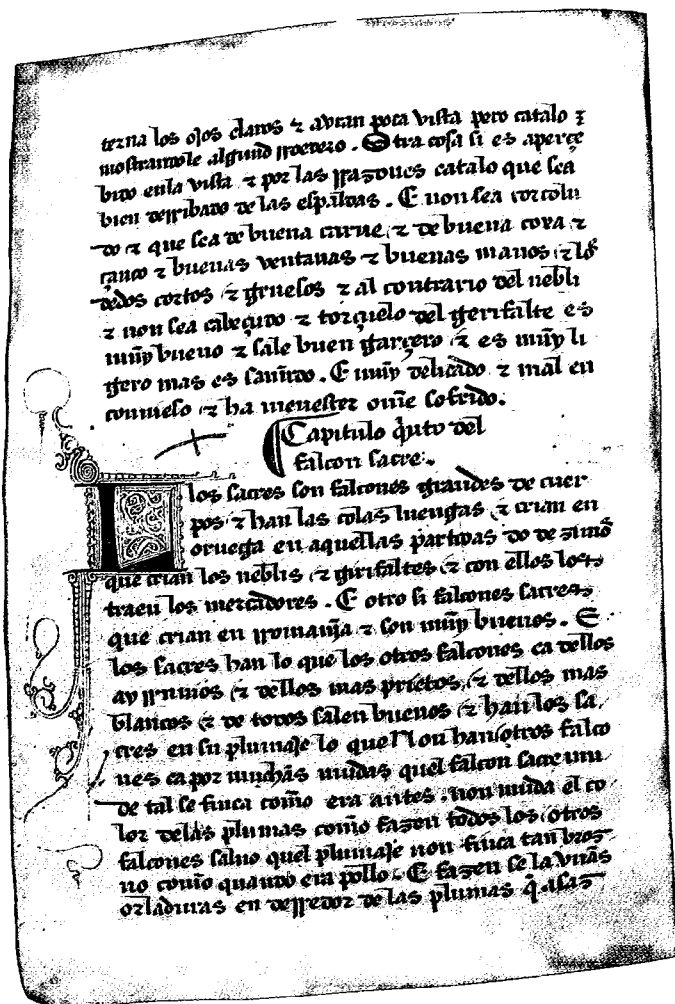 terna los ojos claros τ avran poca vista pero catalo τ
mostrandole algund rroedero . Otra cosa si es aperçe
bido en la vista τ por las rrazones catalo que sea
bien derribado de las espaldas . E non sea corcolu
do τ que sea de buena carne τ de buena cora τ
çanco τ buenas ventanas τ buenas manos τ los
dedos cortos τ gruesos τ al contrario del nebli
τ non sea cabeçudo τ torçuelo del gerifalte es
muy bueno τ sale buen garçero τ es muy li
gero mas es sañudo . E muy delicado τ mal en
conuieso τ ha menester ome sofrido .
Capitulo qͥnto del
falcon sacre .
los sacres son falcones grandes de cuer
pos τ han las colas luengas τ crian en
oruega en aquellas partidas do deximos
que crian los neblis τ girifaltes τ con ellos los
traen los mercadores . E otro si falcones sacres
que crian en rromania τ son muy buenos . E
los sacres han lo que los otros falcones ca dellos
ay rruuios τ dellos mas prietos τ dellos mas
blancos τ de todos salen buenos τ han los sa
cres en su plumaje lo que Non han otros falco
nes ca por muchas mudas quel falcon sacre mu
de tal se finca como era antes . non muda el co
lor delas plumas como fazen todos los otros
falcones saluo quel plumaje non finca tan broz
no como quando era pollo . E fazen se la vnas
orladuras en derredor de las plumas q̇ asaz